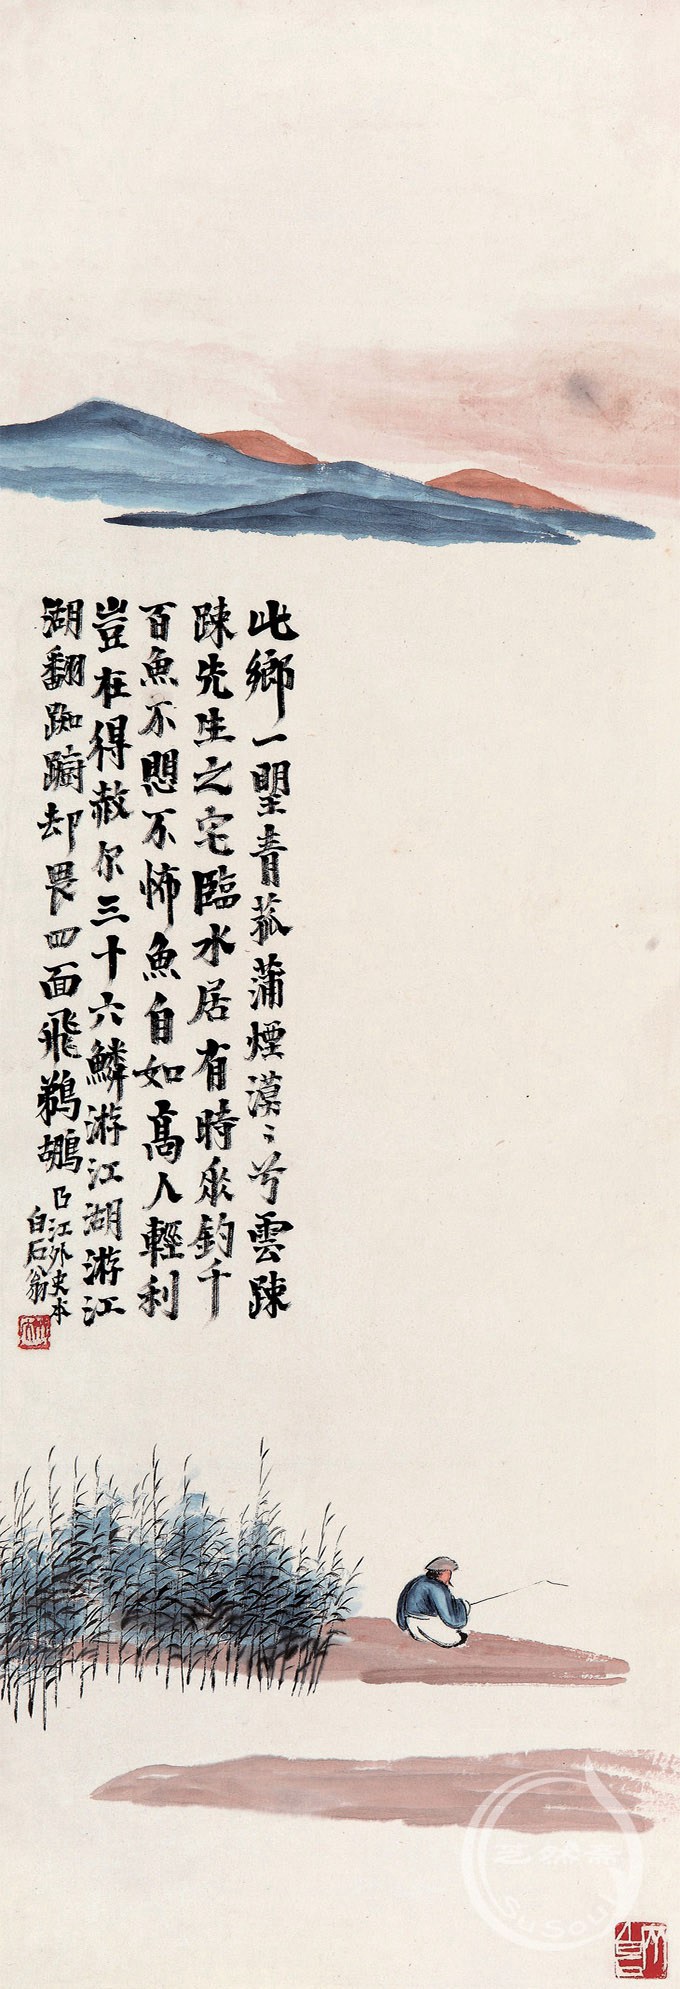 此鄉一朢青菰蒲煙漠〻兮雲踈
踈先生之宅臨水居有時垂釣千
百魚不愳不怖魚自如高人輕利
豈在得赦尔三十六鱗游江湖游江
湖翻踟躕却畏四面飛鵜鶘
曲江外史本
白石翁
SuSoul